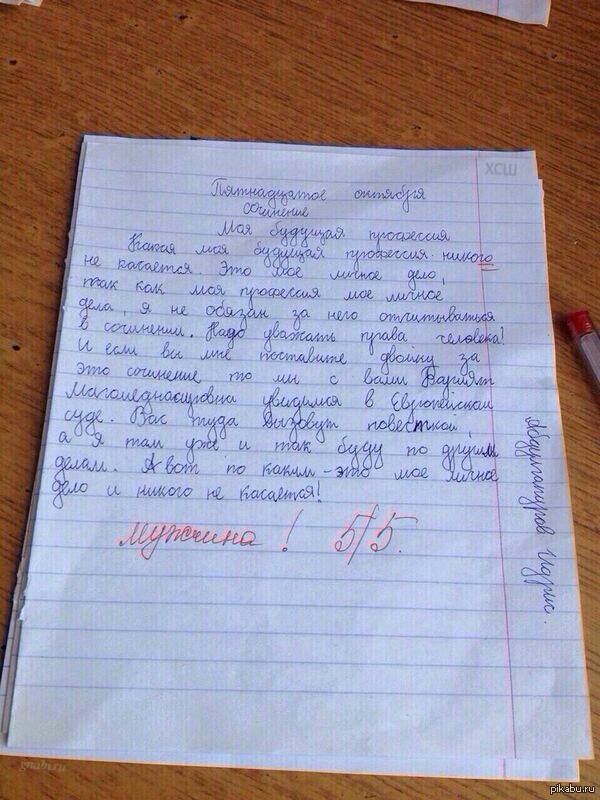 ХСШ
Пятнадцатое октября
сочинение
Моя будущая профессия
Какая моя будущая профессия никого
не касается. Это мое личное дело,
так как моя профессия мое личное
дела, я не обязан за него отчитываться
в сочинении. Надо уважать права человека!
И если вы мне поставите двойку за
это сочинение то мы с вами Варият
Магомеднасировна увидимся в Европейском
суде. Вас туда вызовут повесткой,
а я там уже и так буду по другим
делам. А вот по каким - это мое личное
дело и никого не касается!
мужчина! 5/5.
Абдулгапуров Идрис.
gnabu.ru
pikabu.ru